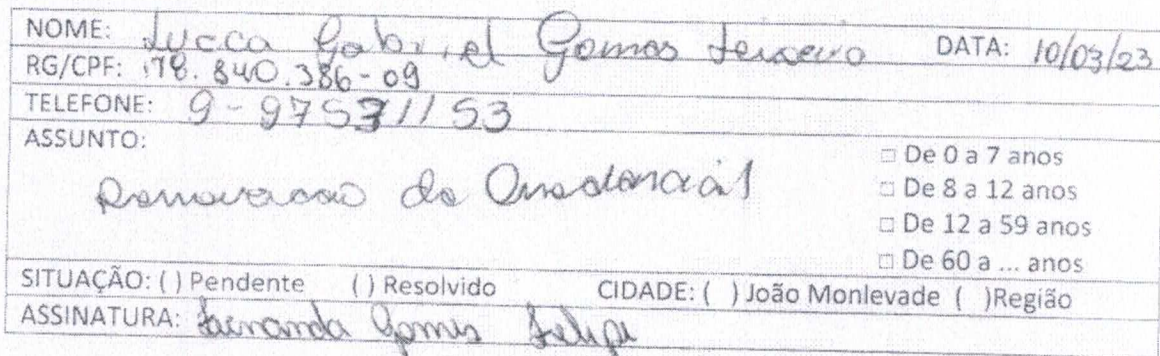 NOME: Lucca Gabriel Gomes Teixeira DATA: 10/03/23
RG/CPF: 178.840.386-09
TELEFONE: 9-97531153
ASSUNTO:
□ De 0 a 7 anos
Renovacao da
□ De 8 a 12 anos
□ De 12 a 59 anos
□ De 60 a ... anos
SITUAÇÃO: ( ) Pendente ( ) Resolvido CIDADE: ( ) João Monlevade ( )Região
ASSINATURA: Fernanda Gomes Felipe